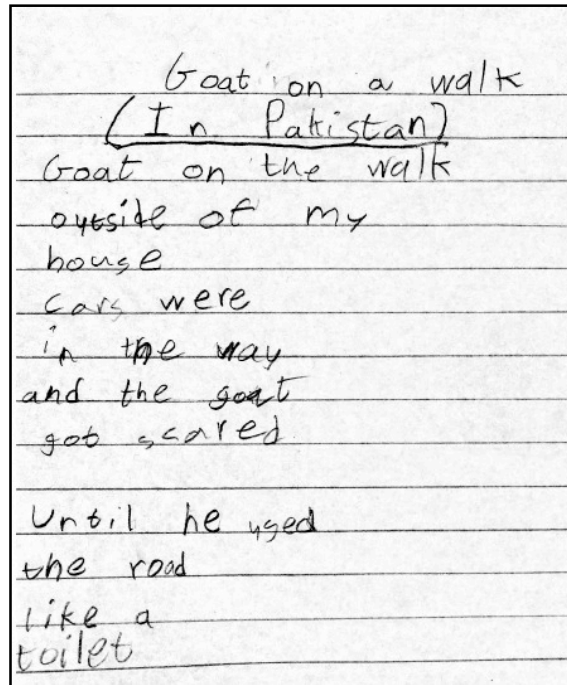 Goat on a walk
(In Pakistan)
Goat on the walk
outside of my
house
cars were
in the way
and the goat
got scared

Until he used
the road
like a
toilet